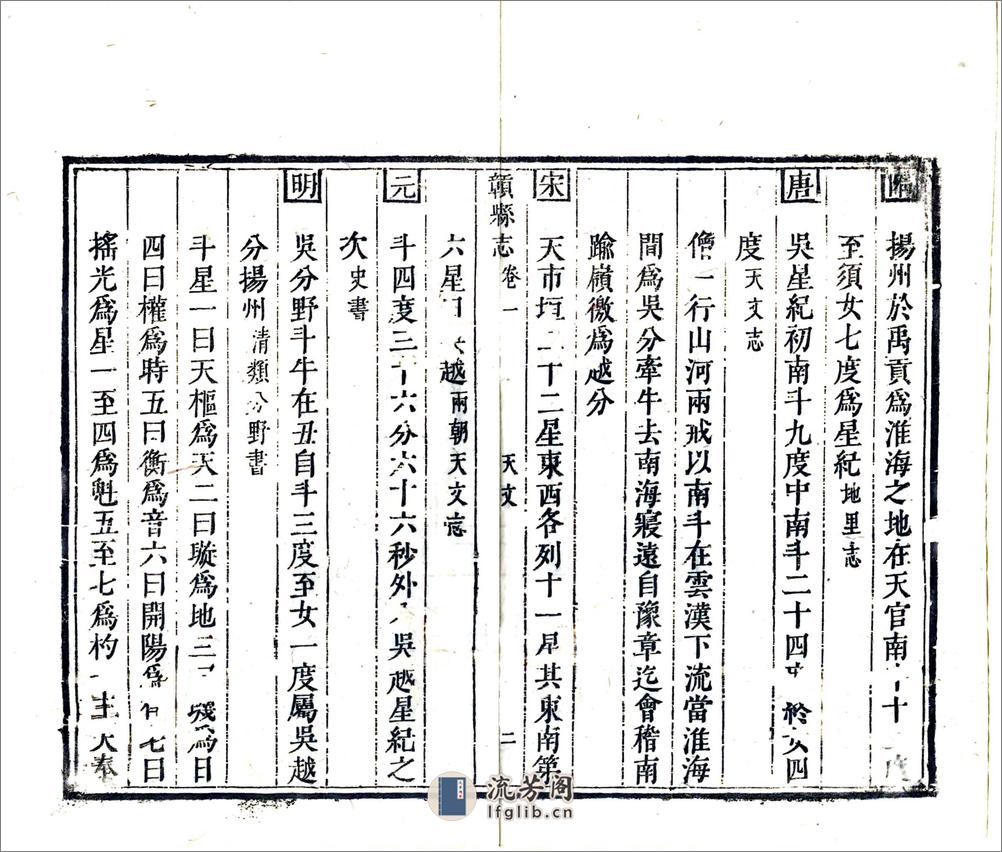 隋
揚州於禹貢爲淮海之地在天官南十
至須女七度爲星紀地里志
唐
吳星紀初南斗九度中南斗二十四度於女四
度天文志
僧一行山河兩戒以南斗在雲漢下流當淮海
間爲吳分牽牛去南海寢遠自豫章迄會稽南
踰嶺徼爲越分
宋
天市垣二十二星東西各列十一星其東南第
贛縣志 卷一 天文 二
六星曰 越兩朝天文志
元
斗四度三十六分六十六秒外入吳越星紀之
次史書
明
吳分野斗牛在丑自斗三度至女一度屬吳越
分揚州清類分野書
斗星一曰天樞爲天二曰璇爲地三曰璣爲日
四曰權爲時五曰衡爲音六曰開陽爲 七曰
搖光爲星一至四爲魁五至七爲杓一主
流芳阁
lfglib.cn